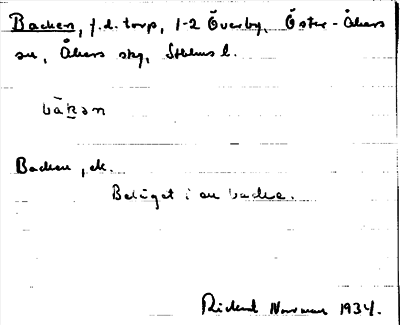 Backen, f.d. torp, 1-2 Överby, Öster-Åkers
sn, Åkers skg, Sthlms l.
bàkən
Backen, ek.
Beläget i en backe.
Rickard 1934.